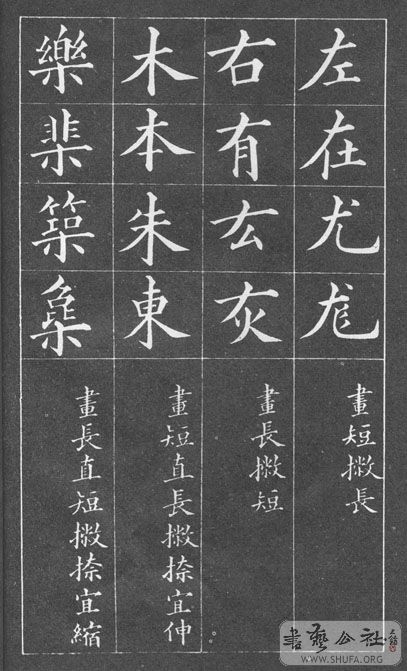 左在尤尨
畫短撇長
右有厷灰
畫長撇短
木本朱東
畫短直長撇捺宜伸
樂棐築梟
畫長直短撇捺宜縮
書藝公社
WWW.SHUFA.ORG